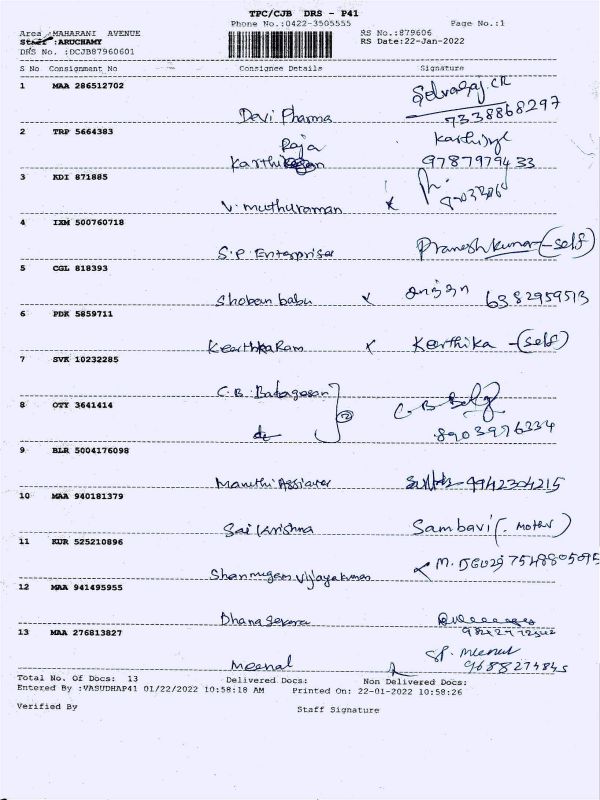 TPC/CJB DRS - P41
Phone No.:0422-3505555 Page No.:1
Area : MAHARANI AVENUE RS No.:879606
Staff :ARUCHAMY RS Date:22-Jan-2022
DRS No. :DCJB87960601
S No Consignment No Consignee Details Signature
1 MAA 286512702 Selvaraj.CR
Devi Pharma 7338868297
2 TRP 5664383 Raja
Karthikeyan 9787979433
3 KDI 871885
V. Muthuraman x
4 IXM 500760718
S.P. Enterprises Pranesh kumar - (self)
5 CGL 818393
Shoban babu x 6382959513
6 PDK 5859711
x Keerthika - (self)
7 SVK 10232285
C.B.
8 OTY 3641414 2 C B
8903976234
9 BLR 5004176098
Maruthi 9942304215
10 MAA 940181379
Sai Krishna Sambavi (. Mother)
11 KUR 525210896
Shanmugam Vijayakumar
12 MAA 941495955
Dhana
13 MAA 276813827 SP. Meenal
Meenal 9688274845
Total No. Of Docs: 13 Delivered Docs: Non Delivered Docs:
Entered By :VASUDHAP41 01/22/2022 10:58:18 AM Printed On: 22-01-2022 10:58:26
Verified By Staff Signature